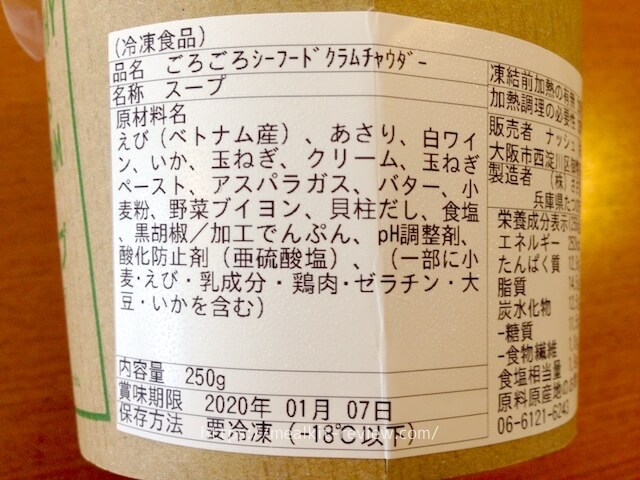 (冷凍食品)
品名 ごろごろシーフードクラムチャウダー
名称 スープ
原材料名
えび(ベトナム産)、あさり、白ワイ
ン、いか、玉ねぎ、クリーム、玉ねぎ
ペースト、アスパラガス、バター、小
麦粉、野菜ブイヨン、貝柱だし、食塩
、黒胡椒/加工でんぷん、pH調整剤、
酸化防止剤(亜硫酸塩)、(一部に小
麦・えび・乳成分・鶏肉・ゼラチン・大
豆・いかを含む)
内容量 250g
賞味期限 2020年 01月 07日
保存方法 要冷凍 -18℃以下)
凍結前加熱の有無
加熱調理の必要性
販売者 ナッシュ
大阪市西淀川区
製造者 (株)
兵庫県たつの
栄養成分表示
エネルギー
たんぱく質
脂質
炭水化物
-糖質
-食物繊維
食塩相当量
原料原産地の
06-6121-6243